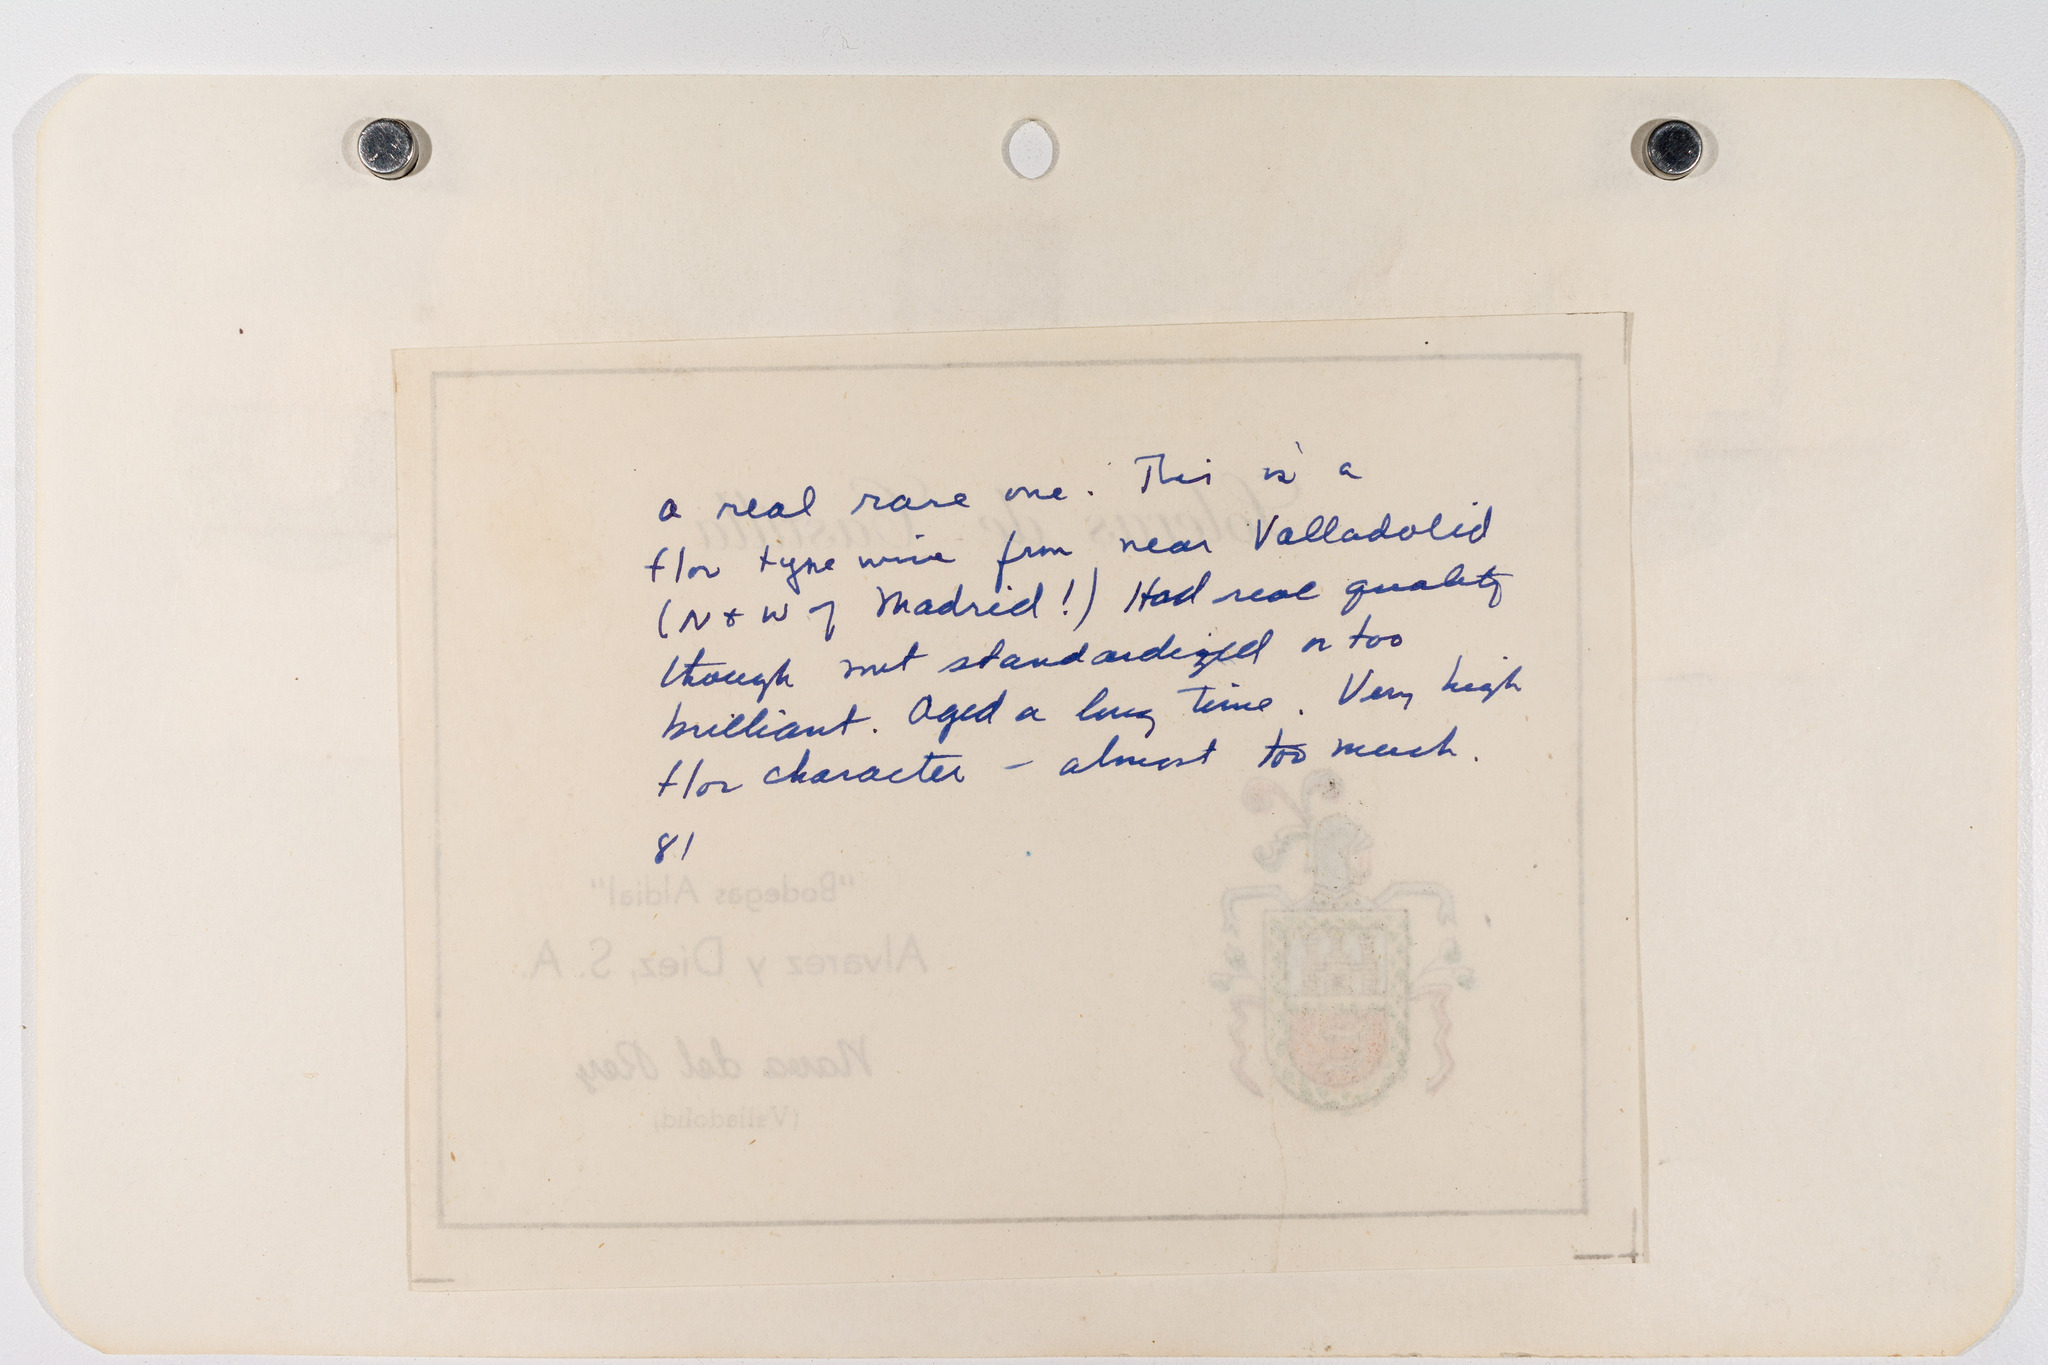 a real rare one. This is a
flor type wine from near Valladolid
(N & W of Madrid!) Had real quality
though not standardized or too
brilliant. Aged a long time. Very high
flor character – almost too much.
81
Soleras de Castilla
"Bodegas Aldial"
Alvarez y Diez, S. A.
Nava del Rey
(Valladolid)